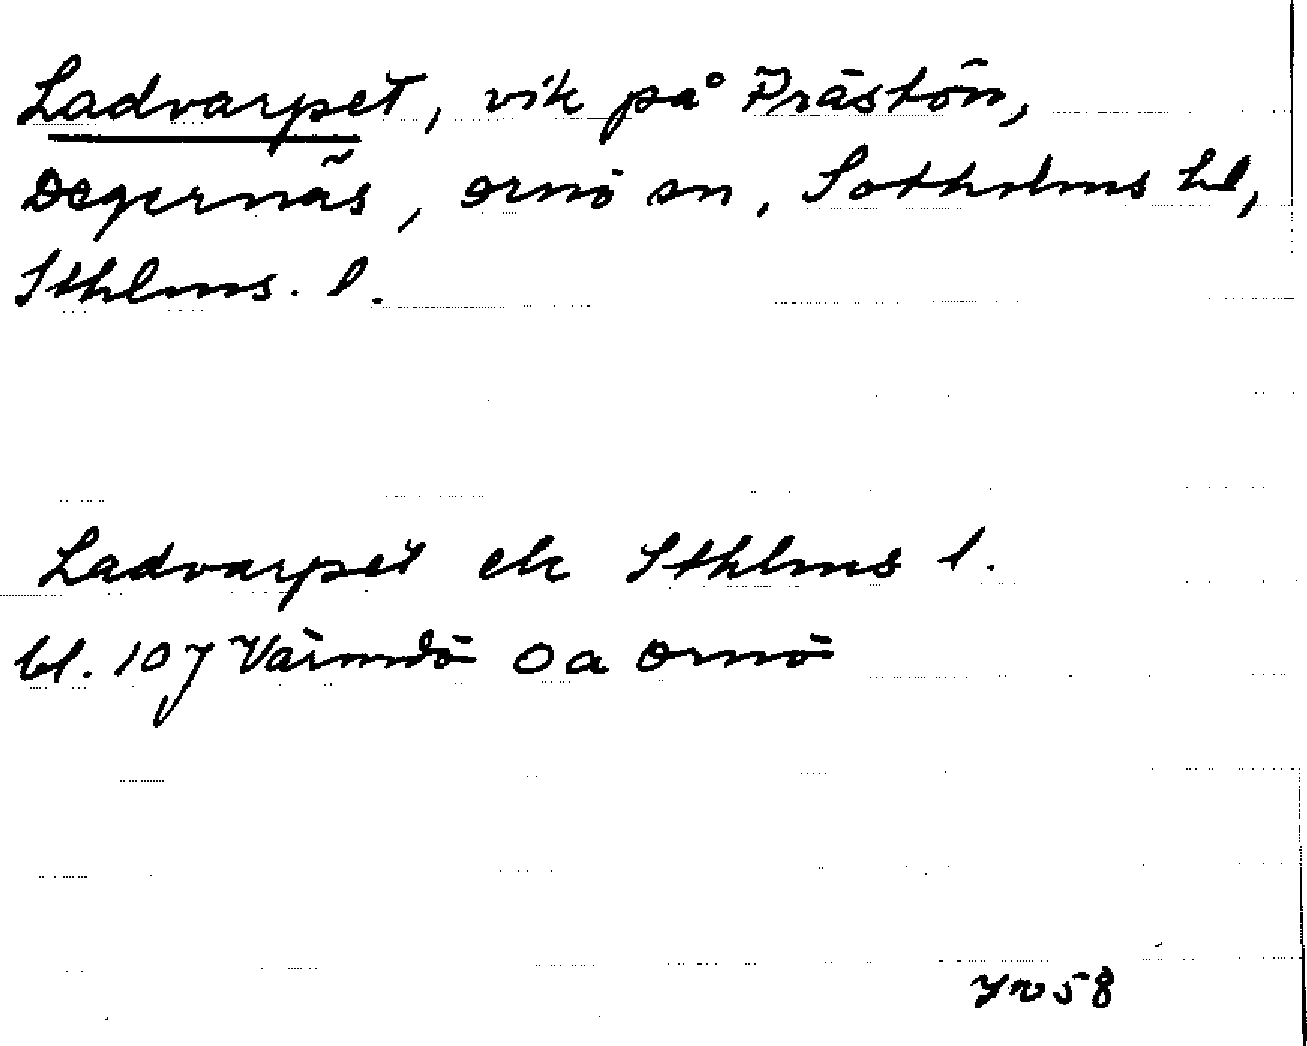 Ladvarpet, vik på Prästön,
Degernäs, Ornö sn, Sotholms hd,
Sthlms. l.
Ladvarpet ek Sthlms l.
bl. 107 Värmdö Oa Ornö
58